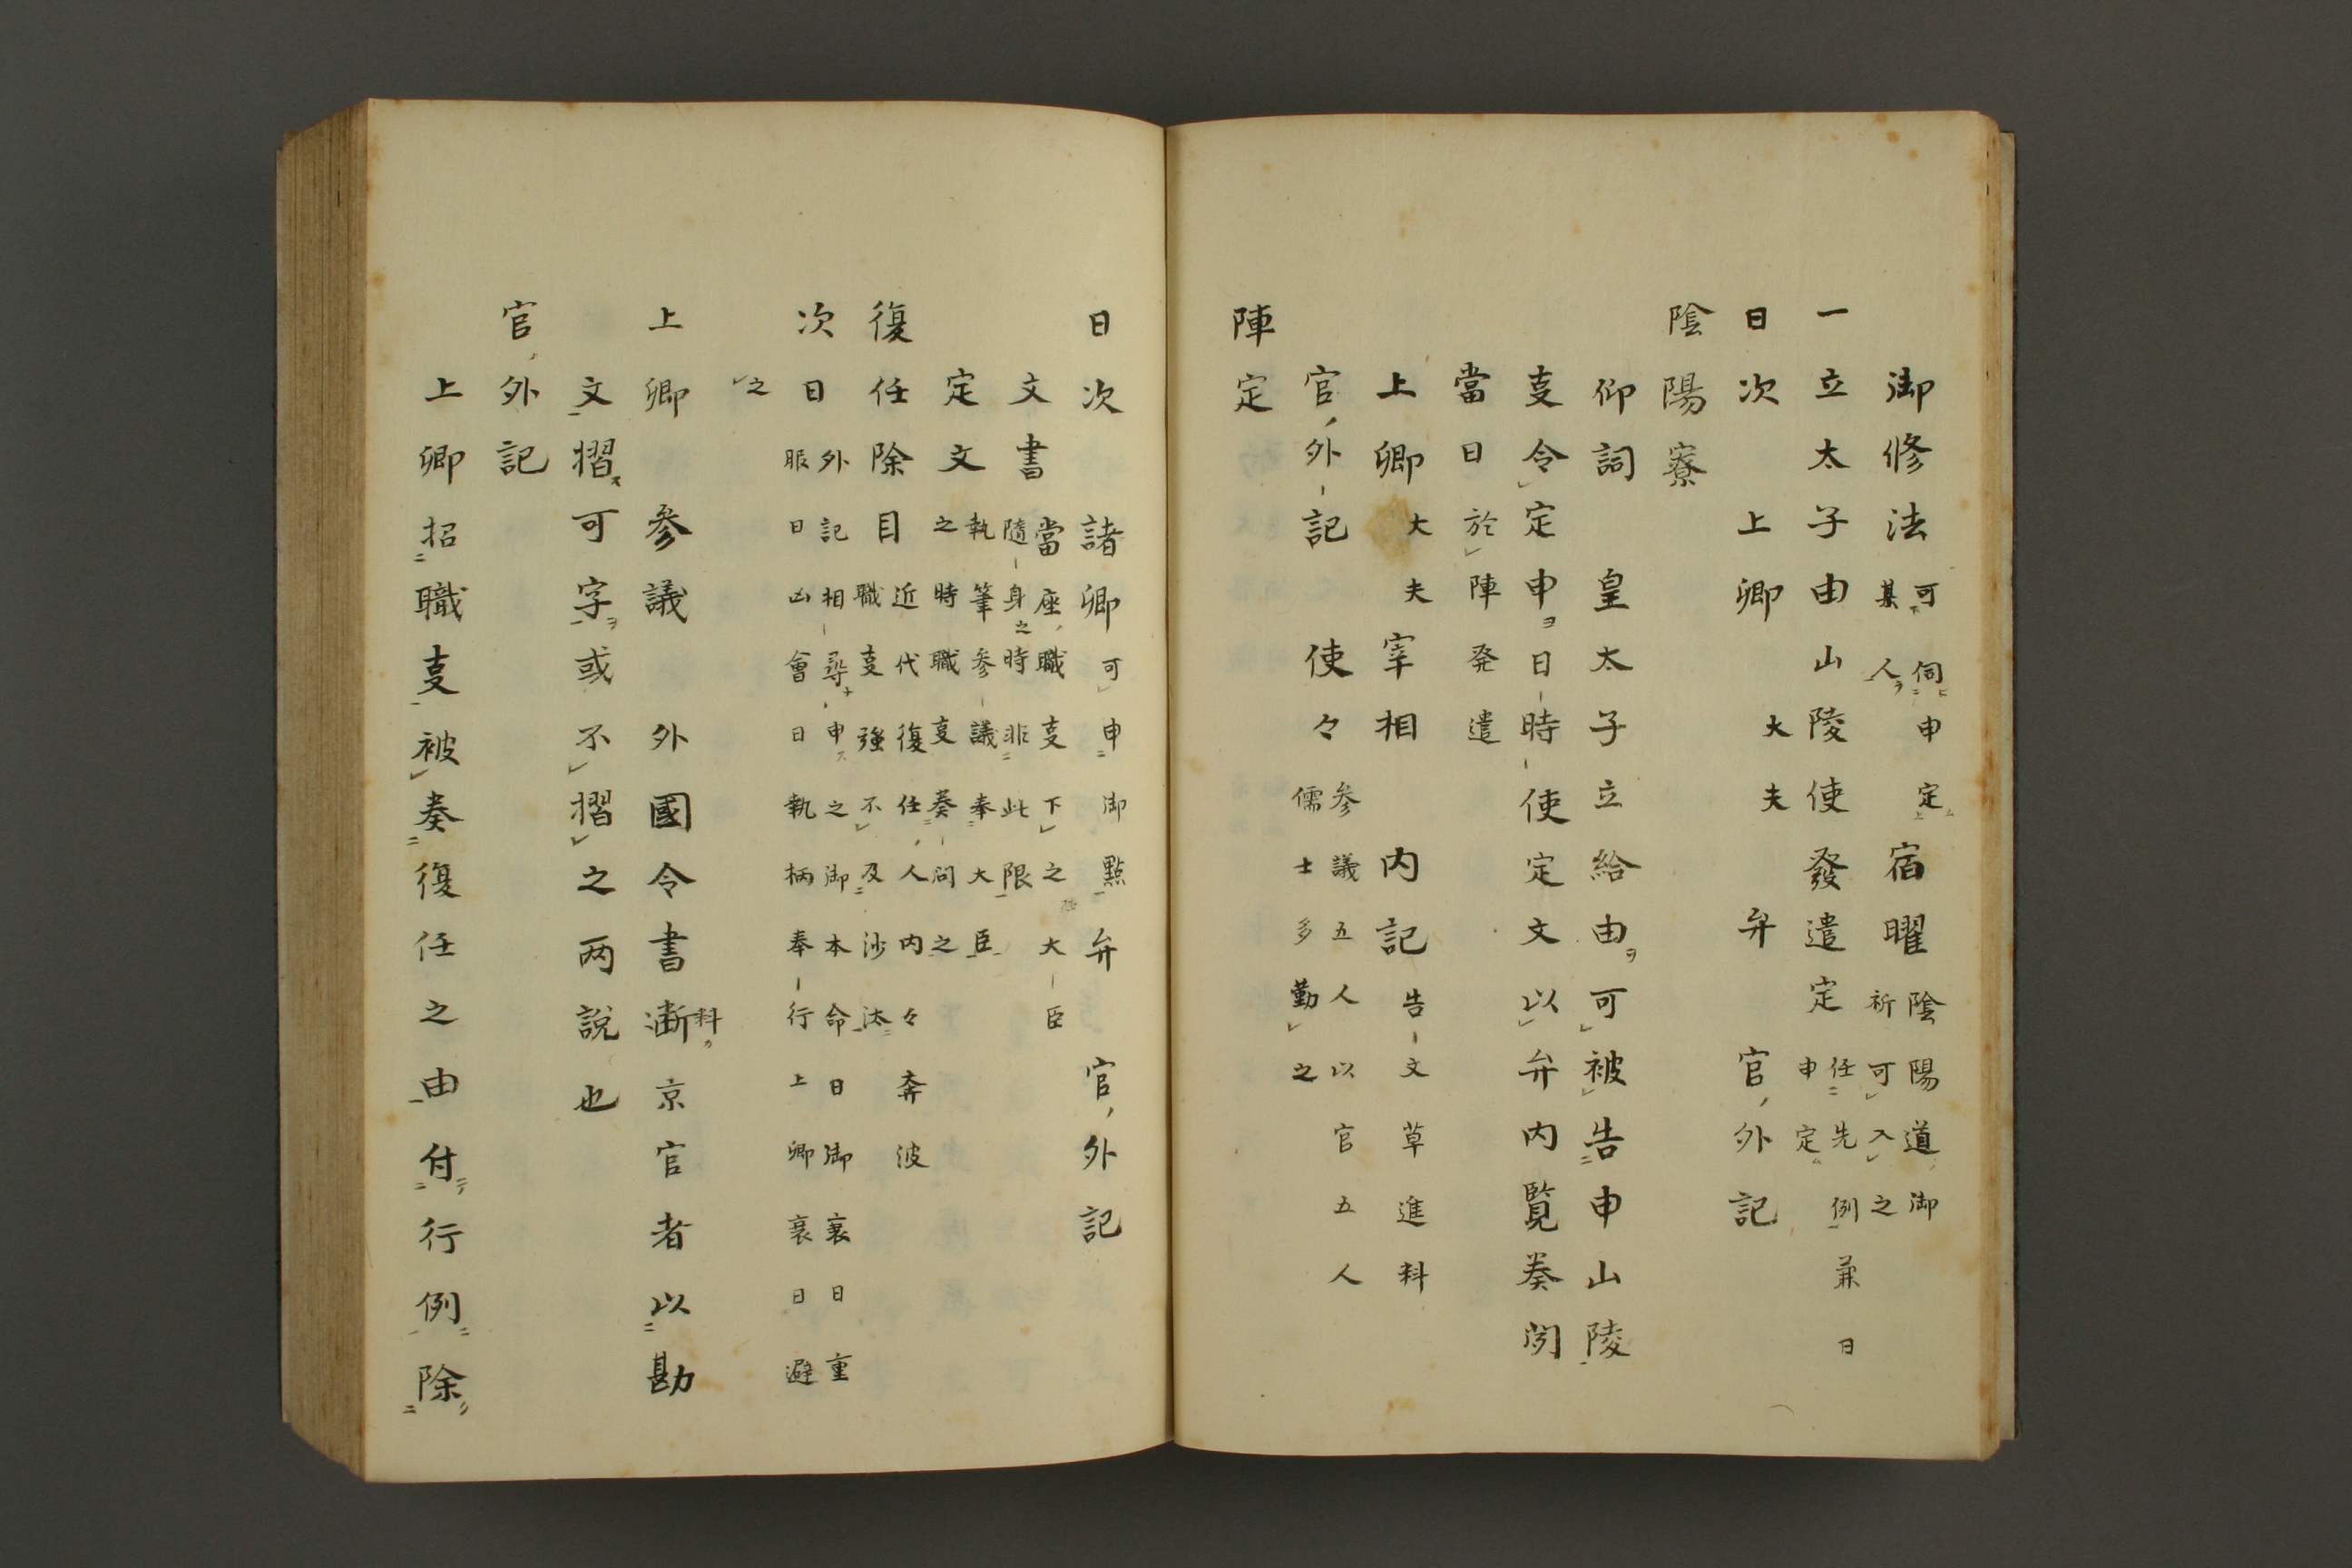 御修法 可伺申定 某人 宿曜 陰陽道御 祈可入之
一立太子由山陵使發遣定 任先例兼日 申定
日次 上卿 大夫 弁 官外記
陰陽寮
仰詞 皇太子立給由ヲ可被告申山陵
支令定申ヲ日時使定文以弁内覧奏聞
當日於陣発遣
上卿 大夫 宰相 内記 告文草進料
官外記 使々 参議五人以官五人 儒士多勤之
陣定
日次 諸卿 可申御點 弁 官外記
文書 當座職支下之大臣 隨身之時非此限
定文 執筆参議奉大臣 之時職支奏問之
復任除目 近代復任人内々奔波 職支強不及沙汰
次日 外記相尋申之御本命日御衰日重 服日凶會日執柄奉行上卿衰日避
之
上卿 参議 外國令書漸料京官者以勘
文摺可字ヲ或不摺之両說也
官外記
上卿招職支被奏復任之由付行例除